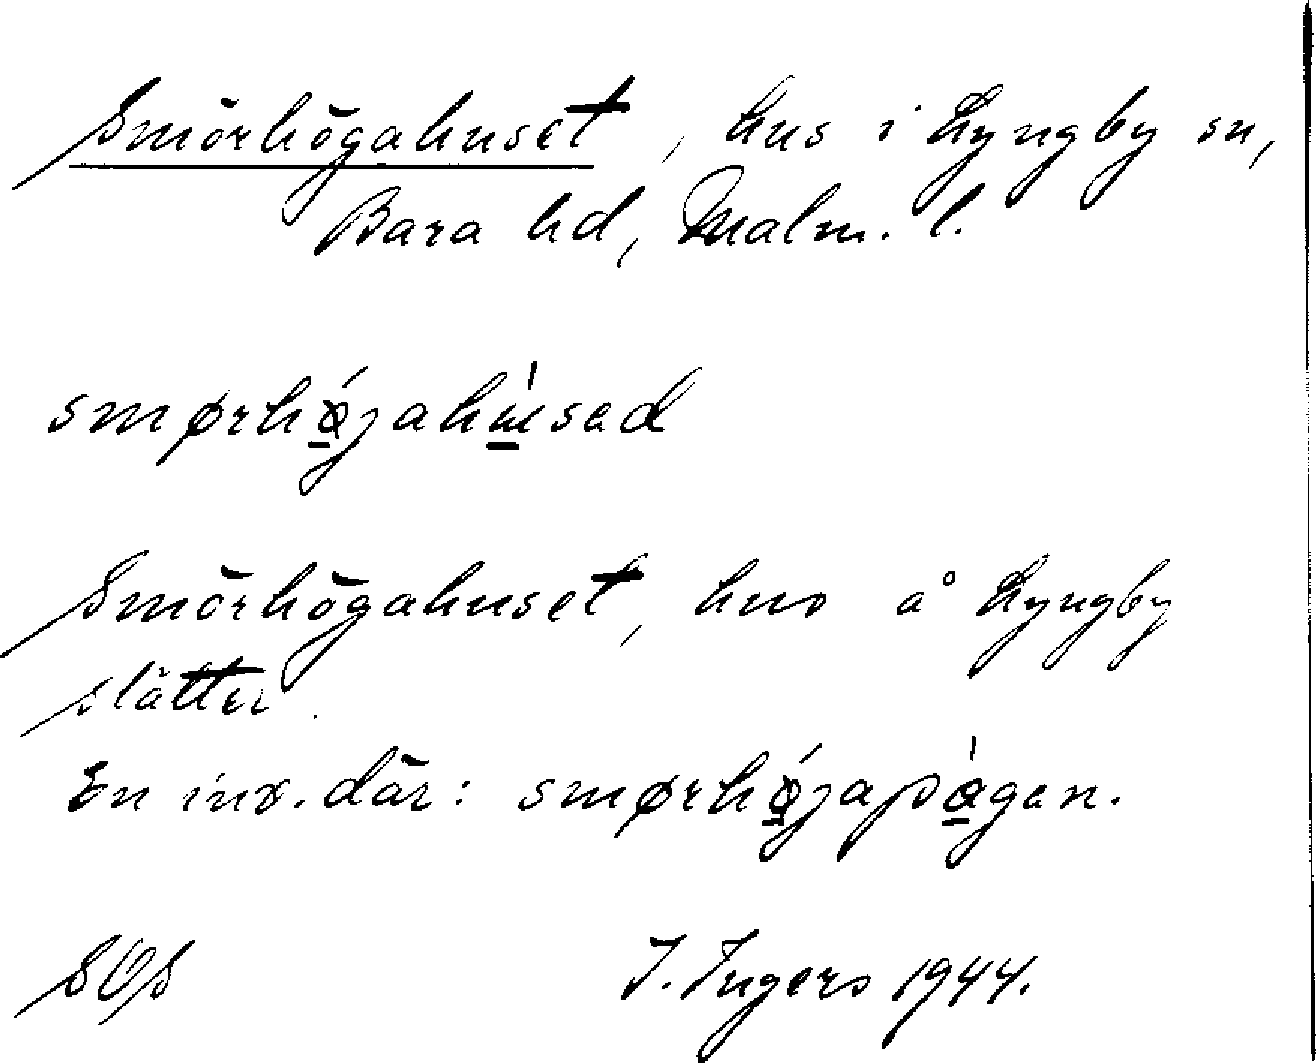 Smörhögahuset, hus i Lyngby sn,
Bara hd, Malm. l.
smørhǿ̱jahɯ̱̀sad
Smörhögahuset, hus å Lyngby
slätter.
En inv. där: smørhǿ̱japɑ̱̀gan.
SOS J. Ingers 1944.